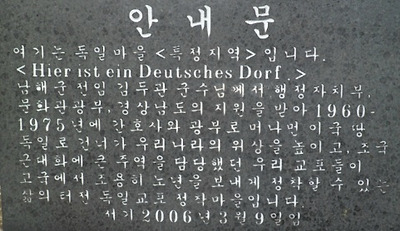 안 내 문
여기는 독일마을 <특정지역> 입니다.
< Hier ist ein Deutsches Dorf .>
남해군 전임 김두관 군수님께서 행정자치부,
문화관광부, 경상남도의 지원을 받아 1960-
1975년에 간호사와 광부로 떠나면 이국 땅
독일로 건너가 우리나라의 위상을 높이고, 조국
근대화에 큰 주역을 담당했던 우리 교포들이
고국에서 조용히 노년을 보내게 정착할 수 있는
삶의 터전 독일 교포 정착마을입니다.
서기 2006년 3월 9일임